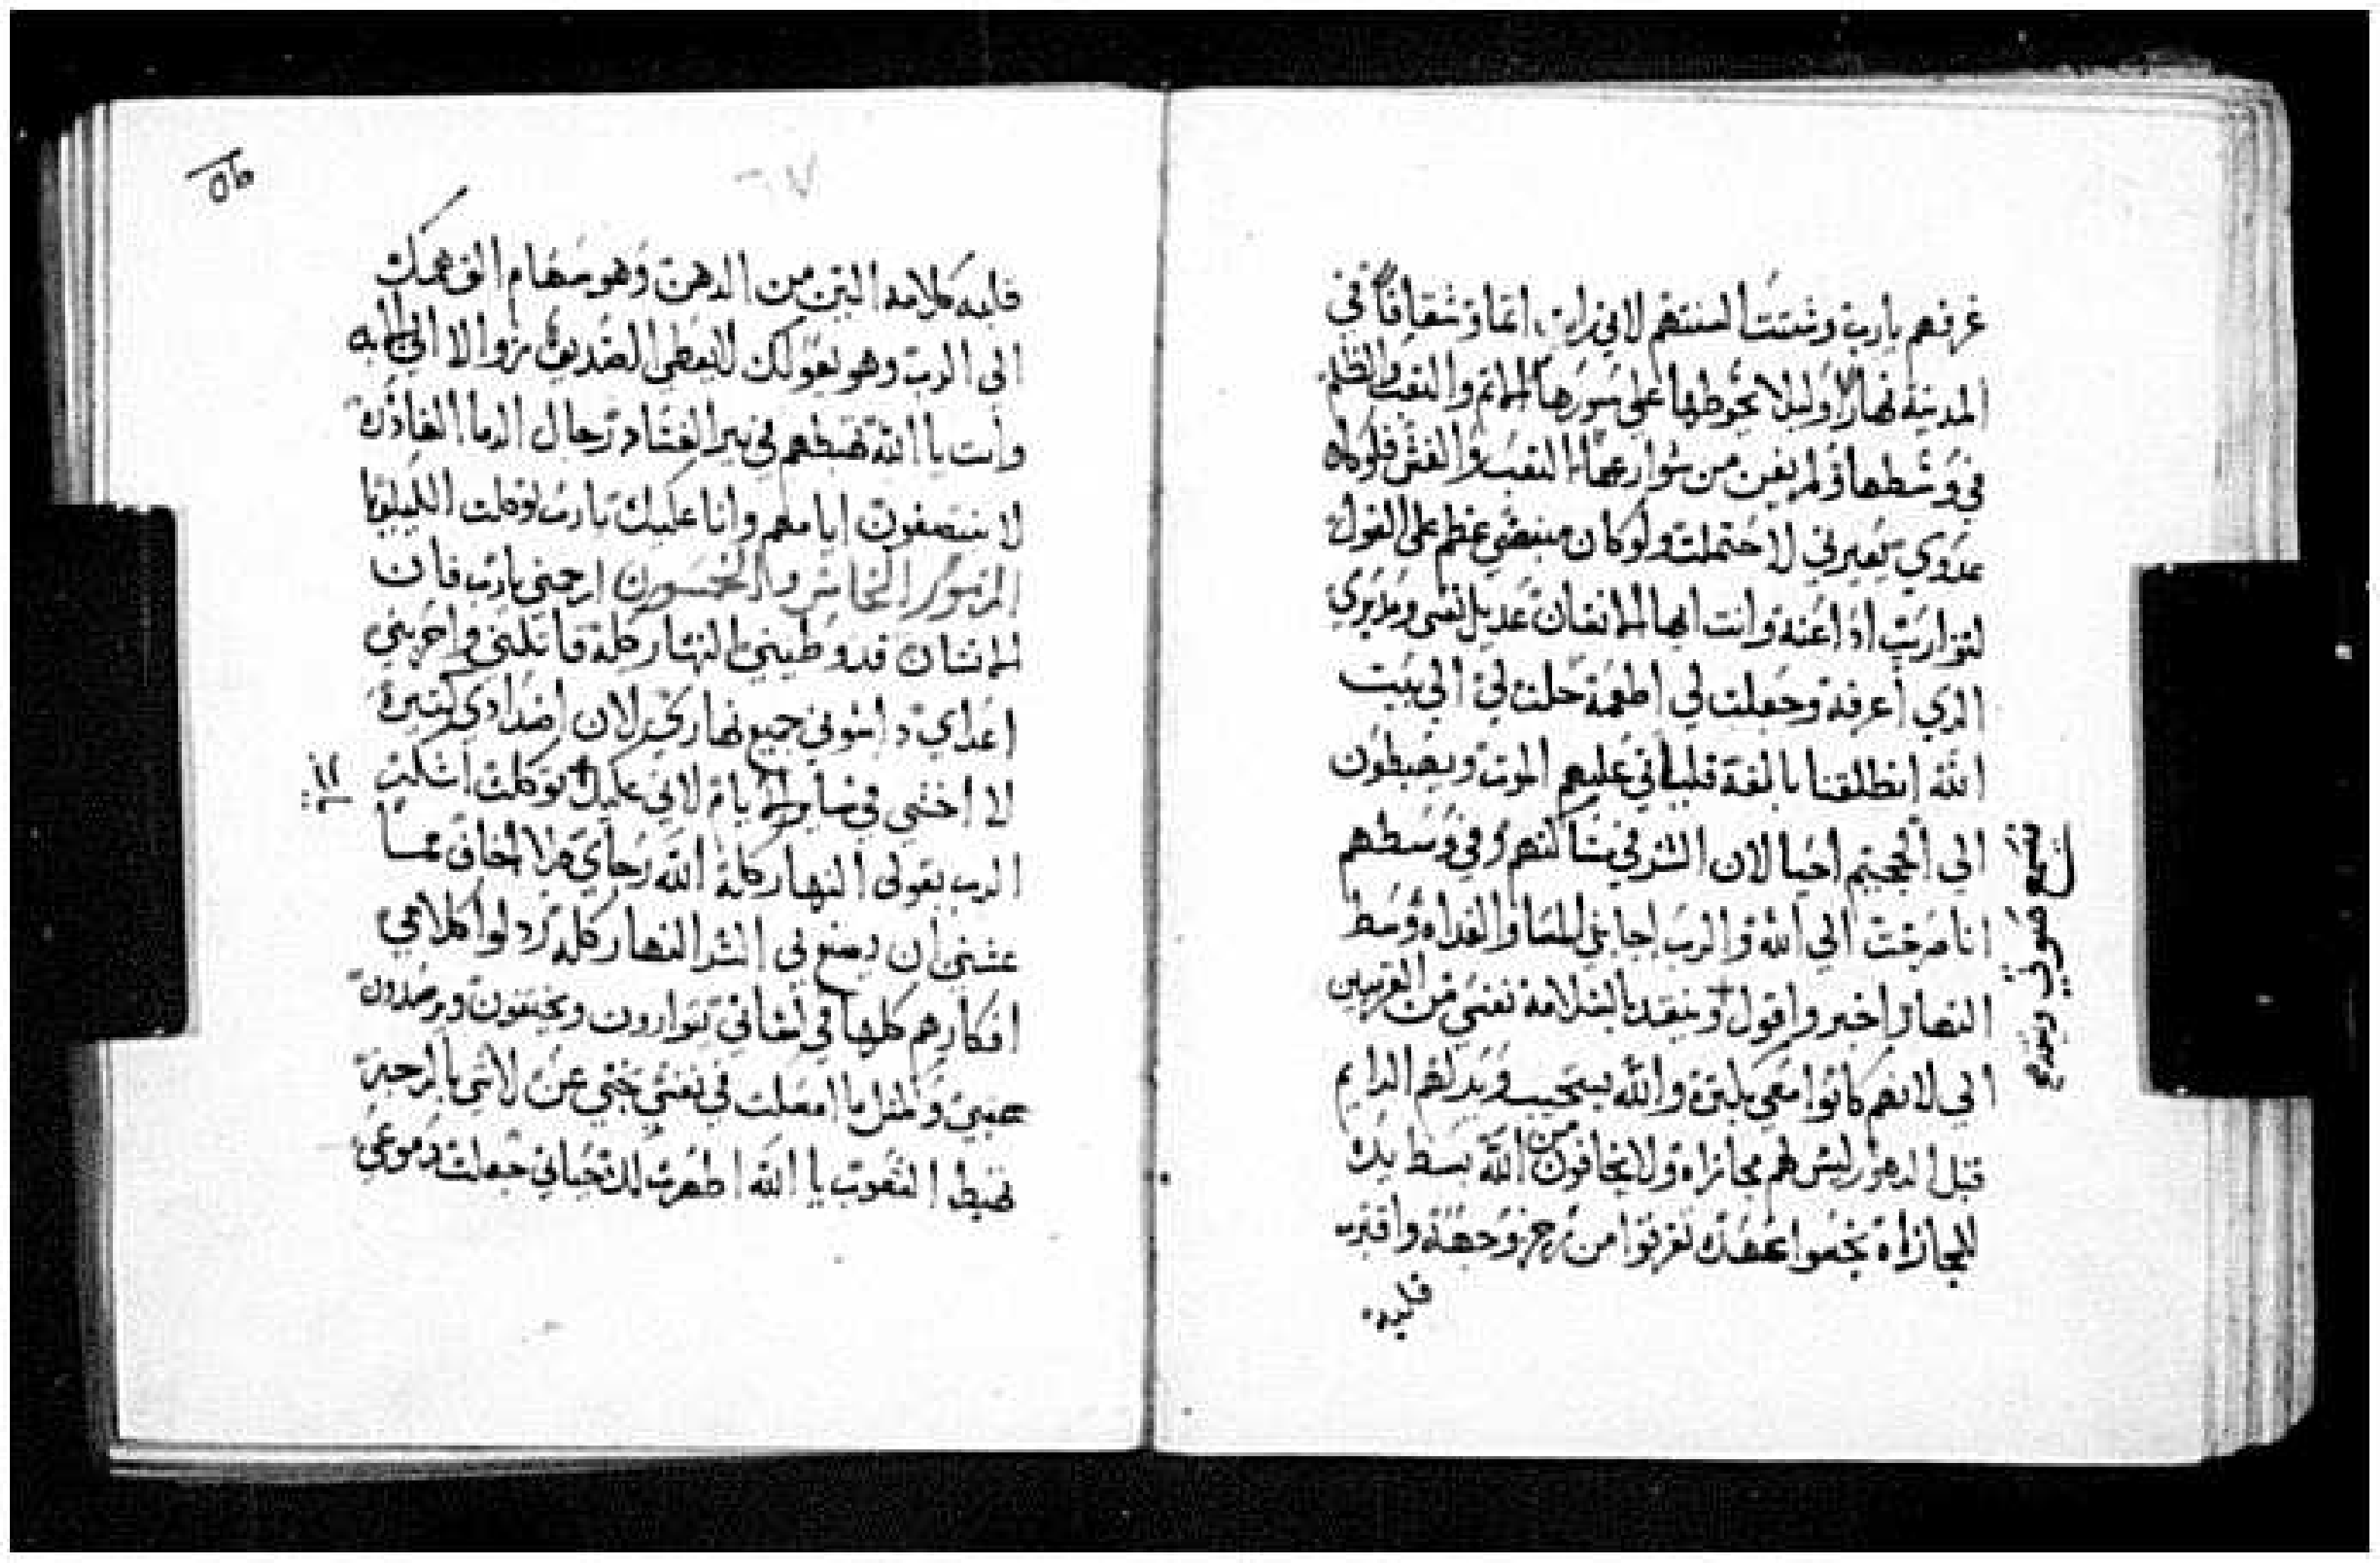 غرقهم يارب وشتت السنتهم لاني رايت اثما وشقاقا في
المدينة نهارا وليلا يحوطها على سورها الاثم والتعب والظلم
في وسطها ولم يفن من شوارعها التعب والغش فلو كان
عدوي يعيرني لاحتملت ولو كان مبغضي عظم علي القول
لتواريت اذا عنه وانت ايها الانسان عديل نفسي ومدبري
الذي اعرفه وجعلت لي اطعمة حلت لي الي بيت
الله انطلقنا بالفة فليأتي عليهم الموت ويهبطون
الي الجحيم احيا لان الشر في مساكنهم وفي وسطهم
انا صرخت الي الله والرب اجابني المسا والغداه ووسط
النهار اخبر واقول + وينقد بالسلامة نفسي من القريبين
الي لانهم كانوا معي بكترة والله يستجيب ويذلهم الدايم
قبل الدهور ليس لهم مجازاه ولا يخافون من الله بسط يده
للمجازاه نجسوا عهده تفرقوا من رجز وجهه واقترب
قلبه
يسمع صوتي
قلبه كلامه الين من الدهن وهو سهام الق همك
الى الرب وهو يعولك لا يعطي الصديق زوالا الي
وانت يا الله تهبطهم في بير الفساد رجال الدما الغادره
لا ينتصفون ايامهم وانا عليك يارب توكلت الليلويا
المزمور الخامس والخمسون ارحمني يارب فان
الانسان قد وطيني النهار كله قاتلني واحزنني
اعداي داسوني جميع نهاري لان اضدادي كتيرة
لا اخشى في ساير الايام لاني عليك توكلت اتكلت
الرب بقولي النهار كله الله رجاي فلا اخاف مما
عسى ان يصنع بي البشر النهار كله رذلوا كلامي
افكارهم كلها في لشاتي يتوارون ويختفون ويرصدون
عقبي ولمثل ما امهلت في نفسي نجني عن لاشي بالرجز
تهبط الشعوب يا الله اظهرت لك حياتي جعلت دموعي